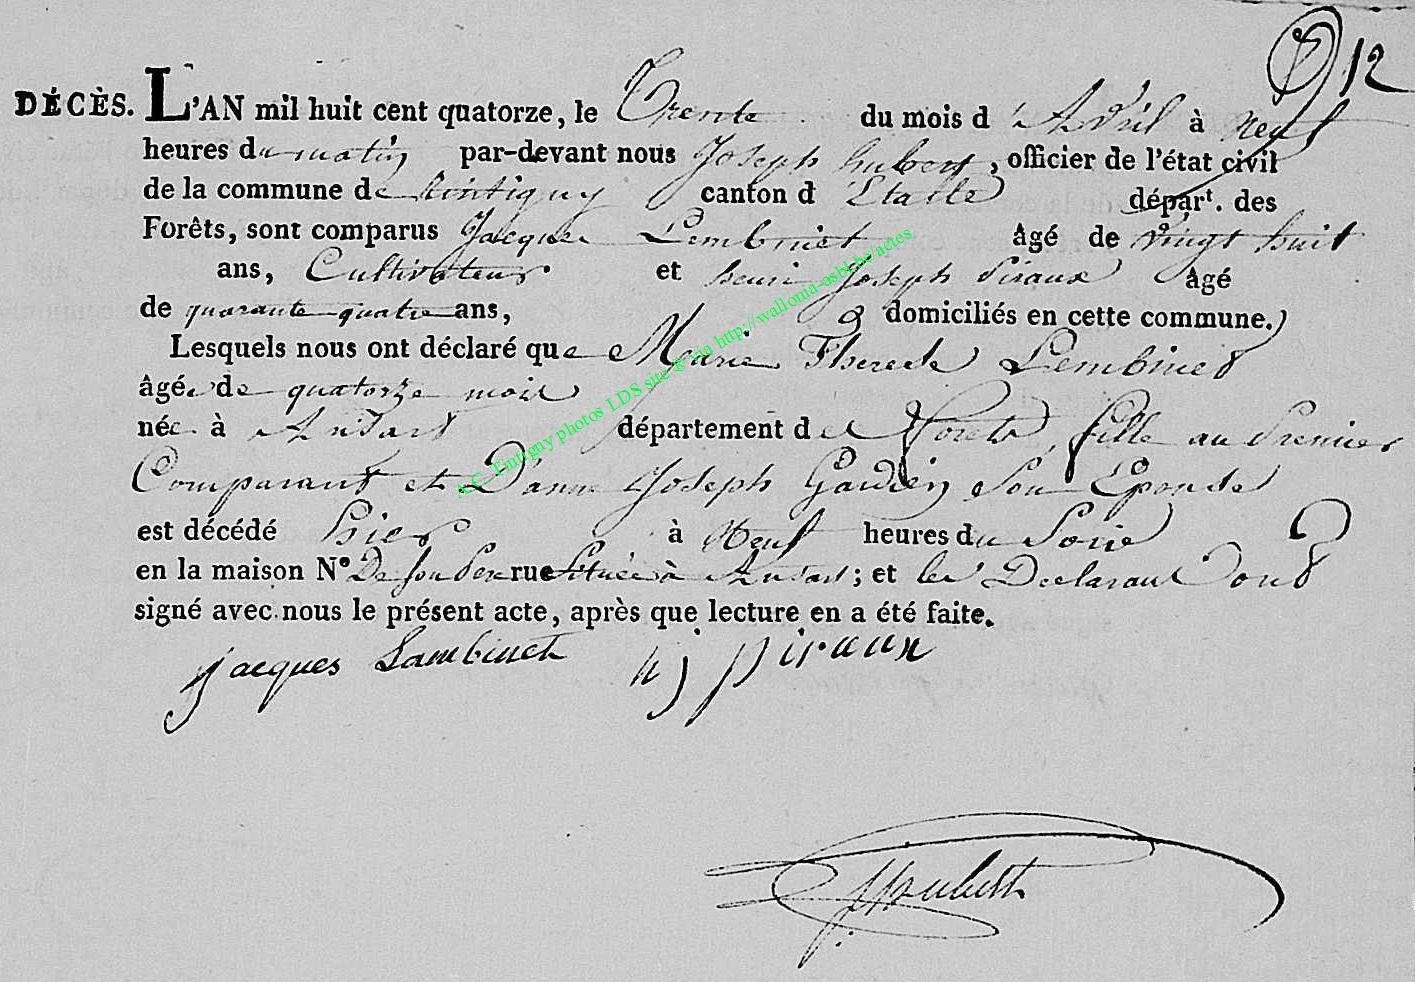 12
DÉCÈS. L'AN mil huit cent quatorze, le Trente du mois d'Avril à neuf
heures du matin par-devant nous Joseph hubert, officier de l'état civil
de la commune de tintigny canton d'Etalle départ. des
Forêts, sont comparus Jacques Lembinet âgé de vingt huit
ans, Cultivateur et henri Joseph Piraux âgé
de quarante quatre ans, domiciliés en cette commune.
Lesquels nous ont déclaré que Marie Therese Lembinet
âgée de quatorze mois
née à Ansart département des Forets, fille au Premier
Comparant et D'anne Joseph Gardien Son Epouse
est décédé hier à Neuf heures du Soir
en la maison N° De son Pere rue Située à Ansart; et les Declarant Dont
signé avec nous le présent acte, après que lecture en a été faite.
jacques Lambinet hj piraux
JHubert
A.C. Tintigny photos LDS site @ via http://wallonia-asbl.be/actes